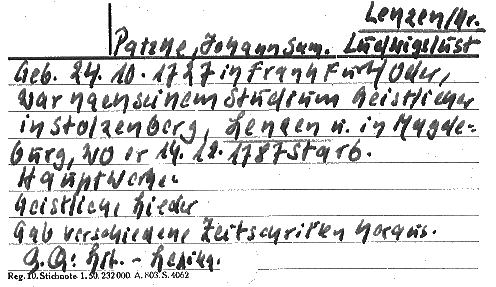 Lenzen/Kr.
Patzke, Johann Sam. Ludwigslust
Geb. 24. 10. 1727 in Frankfurt/Oder,
war nach seinem Studium Geistlicher
in Stolzenberg, Lenzen u. in Magde-
burg, wo er 14. 12. 1787 starb.
Hauptwerke:
Geistliche Lieder
Gab verschiedene Zeitschriften heraus.
Lit. - Lexika.
Reg. 10. Stichnote 1. 50. 232000. A. K03. S. 4062